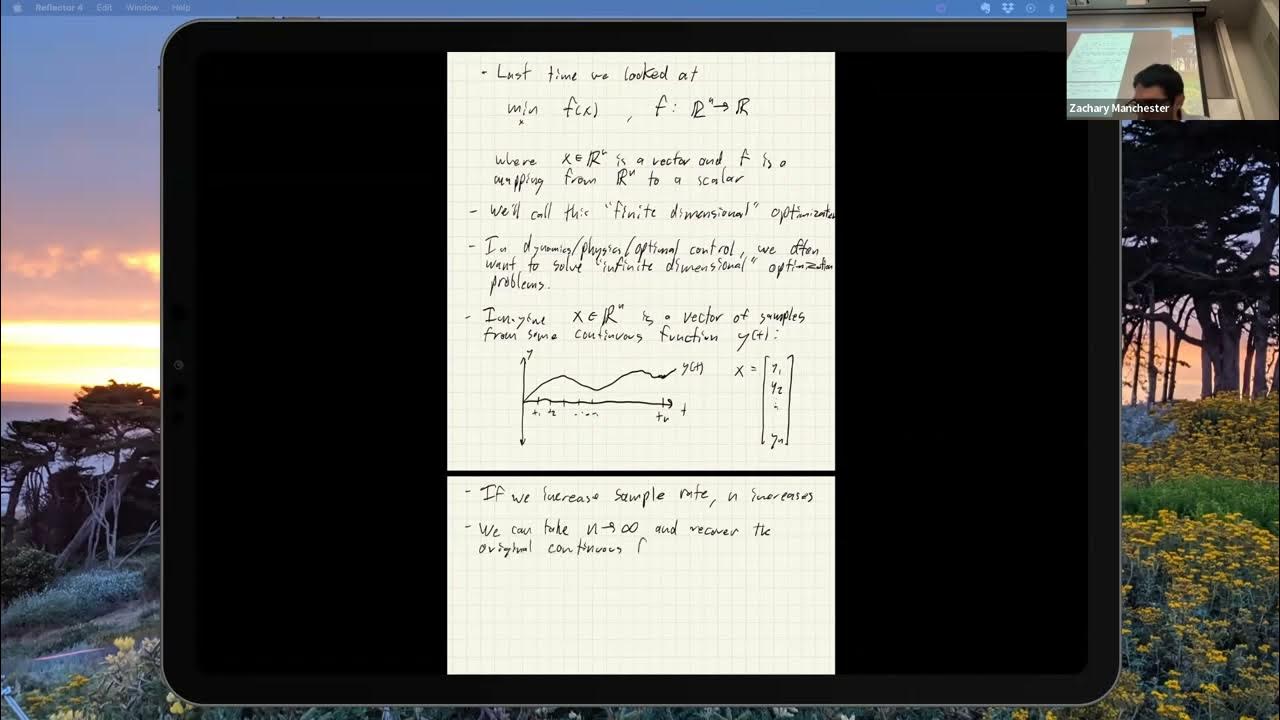 Reflector 4 Edit Window Help
Zachary Manchester
- Last time we looked at
min f(x) , f: ℝⁿ→ℝ
x
where x∈ℝⁿ is a vector and f is a
mapping from ℝⁿ to a scalar
- We'll call this "finite dimensional" optimization
- In dynamics/physics/optimal control, we often
want to solve "infinite dimensional" optimization
problems.
- Imagine x∈ℝⁿ is a vector of samples
from some continuous function y(t):
y
y(t)
t₁ t₂ ..... tₙ t
x = [y₁
y₂
⋮
yₙ]
- If we increase sample rate, n increases
- We can take n→∞ and recover the
original continuous f